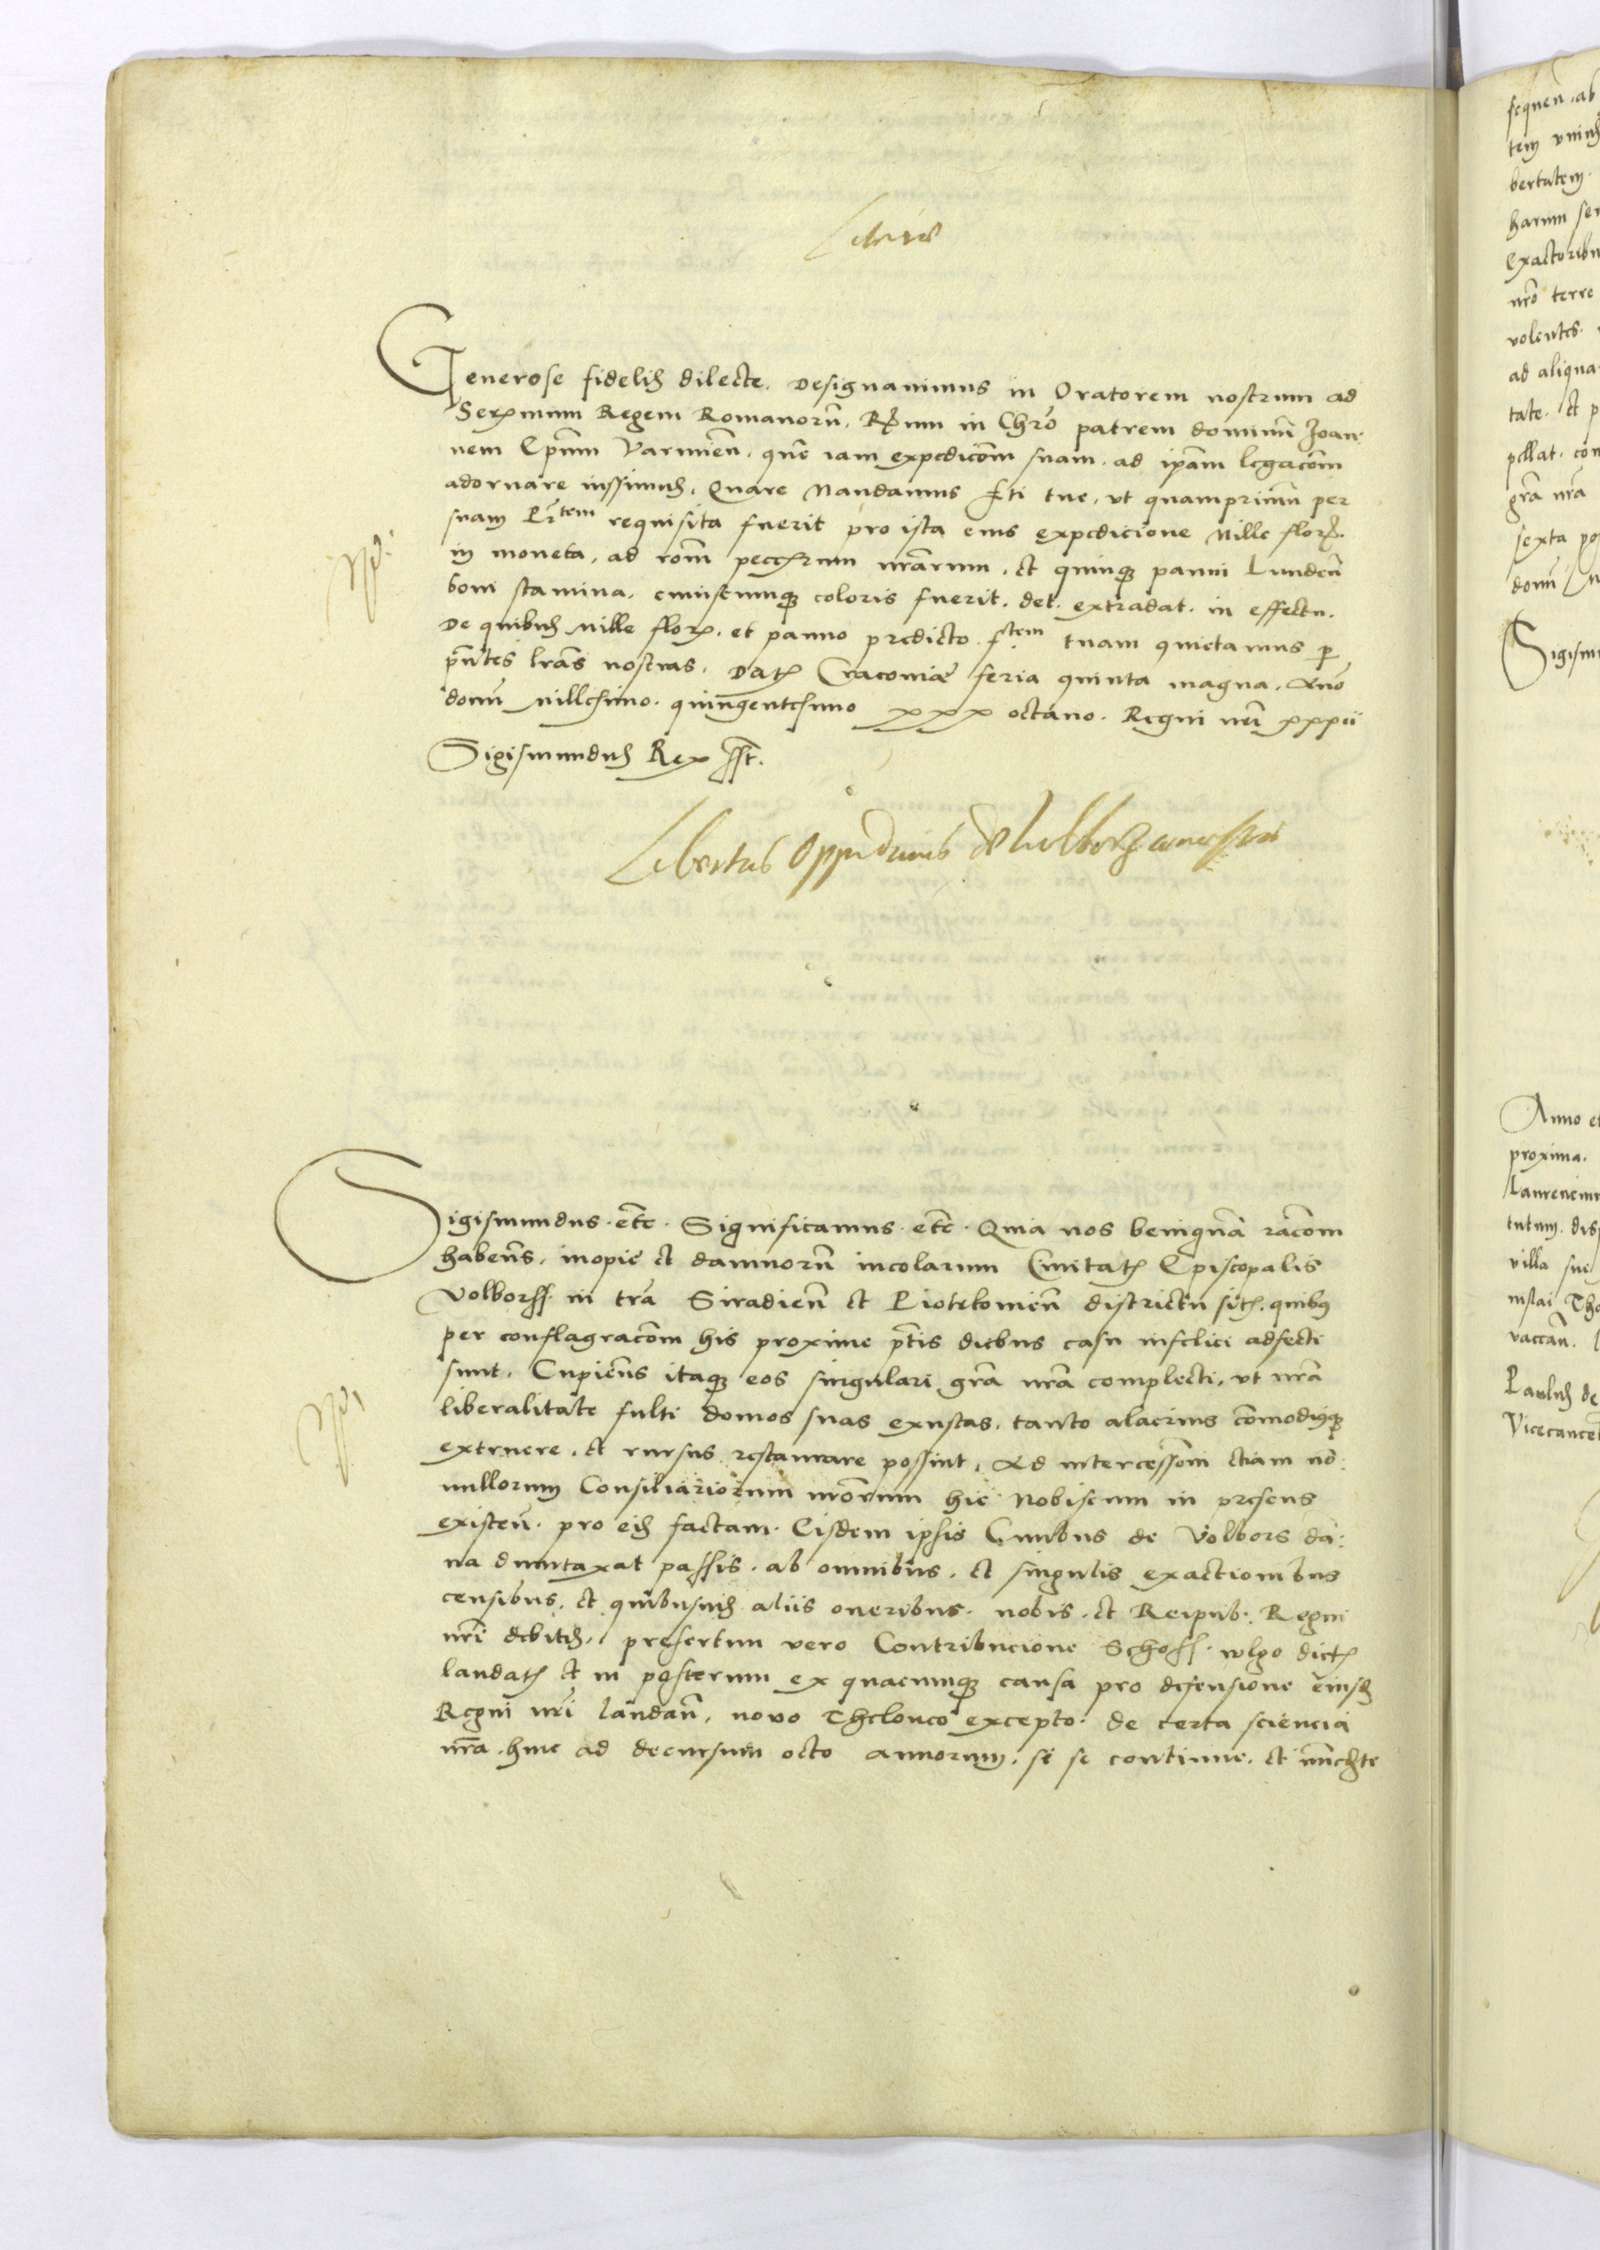 Litere
Generose fidelis dilecte. Designavimus in Oratorem nostrum ad
Serenmum Regem Romanorū, Rndum in Chrō patrem dominū Joan:
nem Epūm Varmieñ. quē iam expedicōm suam. ad ipām legacōm
adornare iussimus. Quare Mandamus f.ti tue, ut quamprimū per
suam P.tem requisita fuerit pro ista eius expedicione Mille flor.
in moneta, ad rōm peccurum nrārum, et quinque panni Lundeñ
boni stamina. cuiuscumque coloris fuerit. det. extradat. in effectu.
De quibus Mille flor. et panno predicto. f.tem tuam quietamus per
pñtes lrās nostras. Dat. Cracoviae feria quinta magna. Anō
domī Millesimo. quingentesimo xxx octavo. Regni nrī xxxii
Sigismundus Rex sst.
Libertas oppidanis de Wolborz concessa
Sigismundus. etc. Significamus. etc. Quia nos benignā racōm
habeñs. inopie et damnorū incolarum Civitatis Episcopalis
Volborss. in trā Siradieñ et Piotrkovieñ districtu sit. quibus
per conflagracōm his proxime ptis diebus casu infelici adfecti
sunt. Cupieñs itaque eos singulari grā nrā complecti, ut nrā
liberalitate fulti domos suas exustas. tanto alacrius cōmodiusque
extruere. et rursus restaurare possint. Ad intercessiōm etiam nō:
nullorum Consiliariorum nrōrum hic Nobiscum in presens
existeñ. pro eis factam. Eisdem ipsis Civibus de Volbors dā:
na duntaxat passis. ab omnibus. et singulis exactionibus
censibus. et quibusvis aliis oneribus. nobis. et Reipub: Regni
nrī debitis, presertim vero Contribucione Schoss. vulgo dict.
laudat. et in posterum ex quacunque causa pro defensione eiusdem
Regni nrī laudañ. novo Theloneo excepto. de certa sciencia
nrā. hinc ad decursum octo annorum. si se continue. et
sequeñ. ab
tem
bertatem.
harum ser
Exactoribu
nrō terre
volentes.
ad aliqua
tate. et p
pellat. con
grā nrā
sexta po
domī
Sigism
Anno et
proxima.
Laurencium
tutum. disp
villa sue
nstai Tho
vaccañ.
Paulus de
Vicecancel